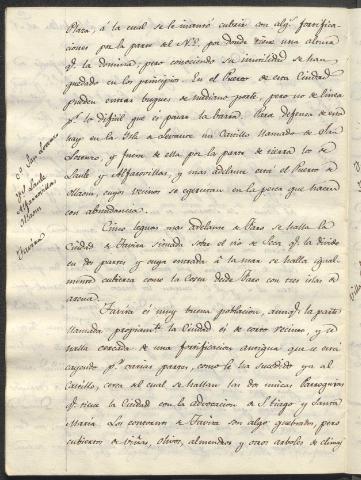 Plaza, á la cual se le intentó cubrir con algs. fortifica-
ciones por la parte del N.te, por donde tiene una altura
q.e la domina, pero conociendo su inutilidad se han
quedado en los principios. En el Puerto de esta Ciudad
pueden entrar buques de mediano porte, pero no de linea
p.r lo dificil que es pasar la barra. Para defensa de esta
hay en la Isla de Levante un Castillo llamado de San
Lorenzo, y fuera de ella por la parte de tierra los de
Laule y Alfaxovillas, y mas adelante está el Puerto de
Ollaon, cuyos vecinos se exercitan en la pesca que hacen
con abundancia.
C.o San Lorenzo
Laule
Alfaxovillas
Ollaon
Cinco leguas mas adelante de Faro se halla la
Ciudad de Tavira situada sobre el rio de Seca q.e la divide
en dos partes y cuya entrada á la mar se halla igual-
mente cubierta como la Costa desde Faro con tres islas de
arena.
Tavira
Tavira es muy buena poblacion, aunq.e la parte
llamada propiam.te la Ciudad es de corto vecino, y se
halla cercada de una fortificacion antigua que se está
cayendo p.r varias partes, como le ha sucedido ya al
Castillo, cerca del cual se hallan las dos unicas Parroquias
q.e tiene la Ciudad con la advocacion de S.tiago y Santa
Maria. Los contornos de Tavira son algo quebrados, pero
cubiertos de viñas, olivos, almendros y otros arboles de climas